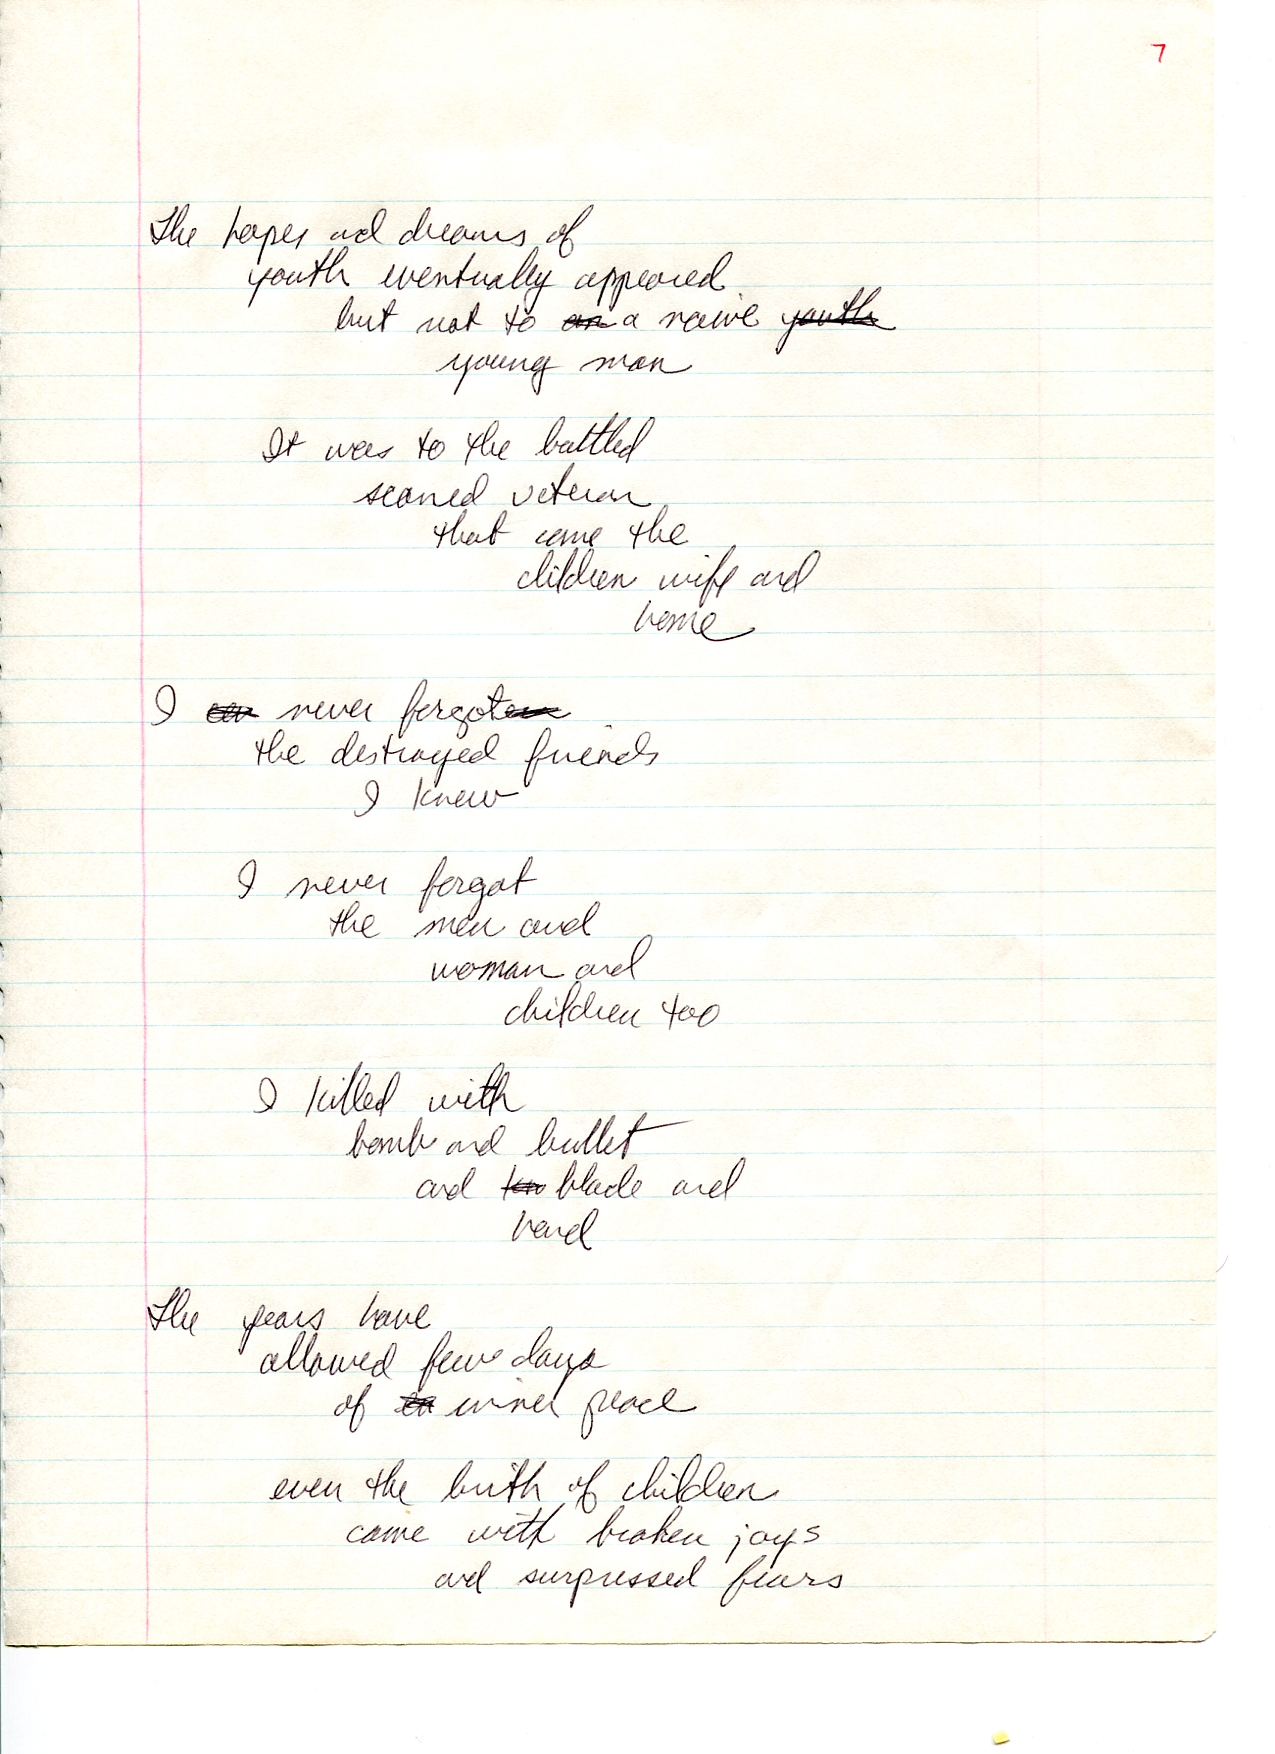 7
The hopes and dreams of
youth eventually appeared
but not to an a naive youth
young man
It was to the battled
scarred veteran
that came the
children wife and
home
I never forgoten
the destroyed friends
I knew
I never forgot
the men and
woman and
children too
I killed with
bomb and bullet
and blade and
hand
The years have
allowed few days
of inner peace
even the birth of children
came with broken joys
and surpressed fears